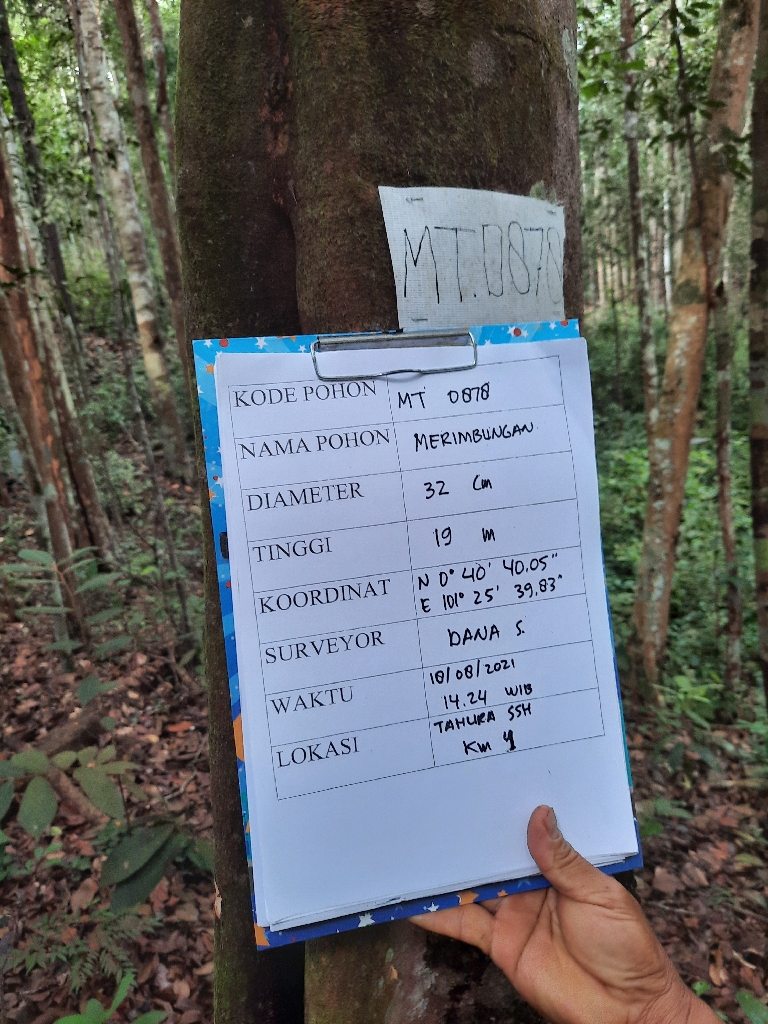 MT.0878
KODE POHON MT 0878
NAMA POHON MERIMBUNGAN
DIAMETER 32 Cm
TINGGI 19 m
KOORDINAT N 0° 40' 40.05"
E 101° 25' 39.83"
SURVEYOR DANA S.
WAKTU 18/08/2021
14.24 WIB
LOKASI TAHURA SSH
Km